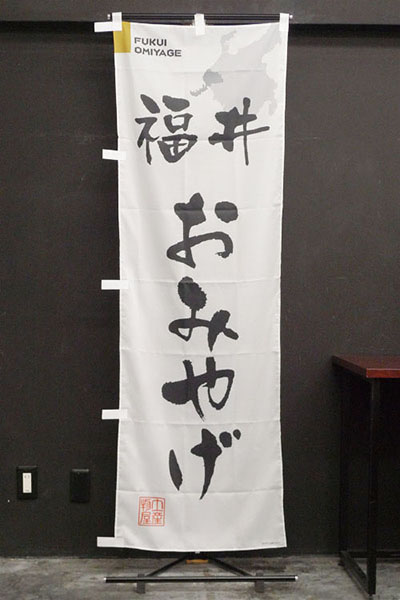 FUKUI
OMIYAGE
福井
おみやげ
土産
物屋